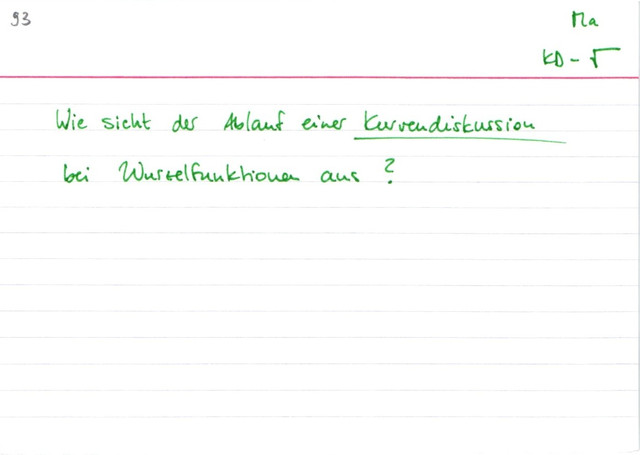 93
Ma
KD - √
Wie sieht der Ablauf einer Kurvendiskussion
bei Wurzelfunktionen aus ?